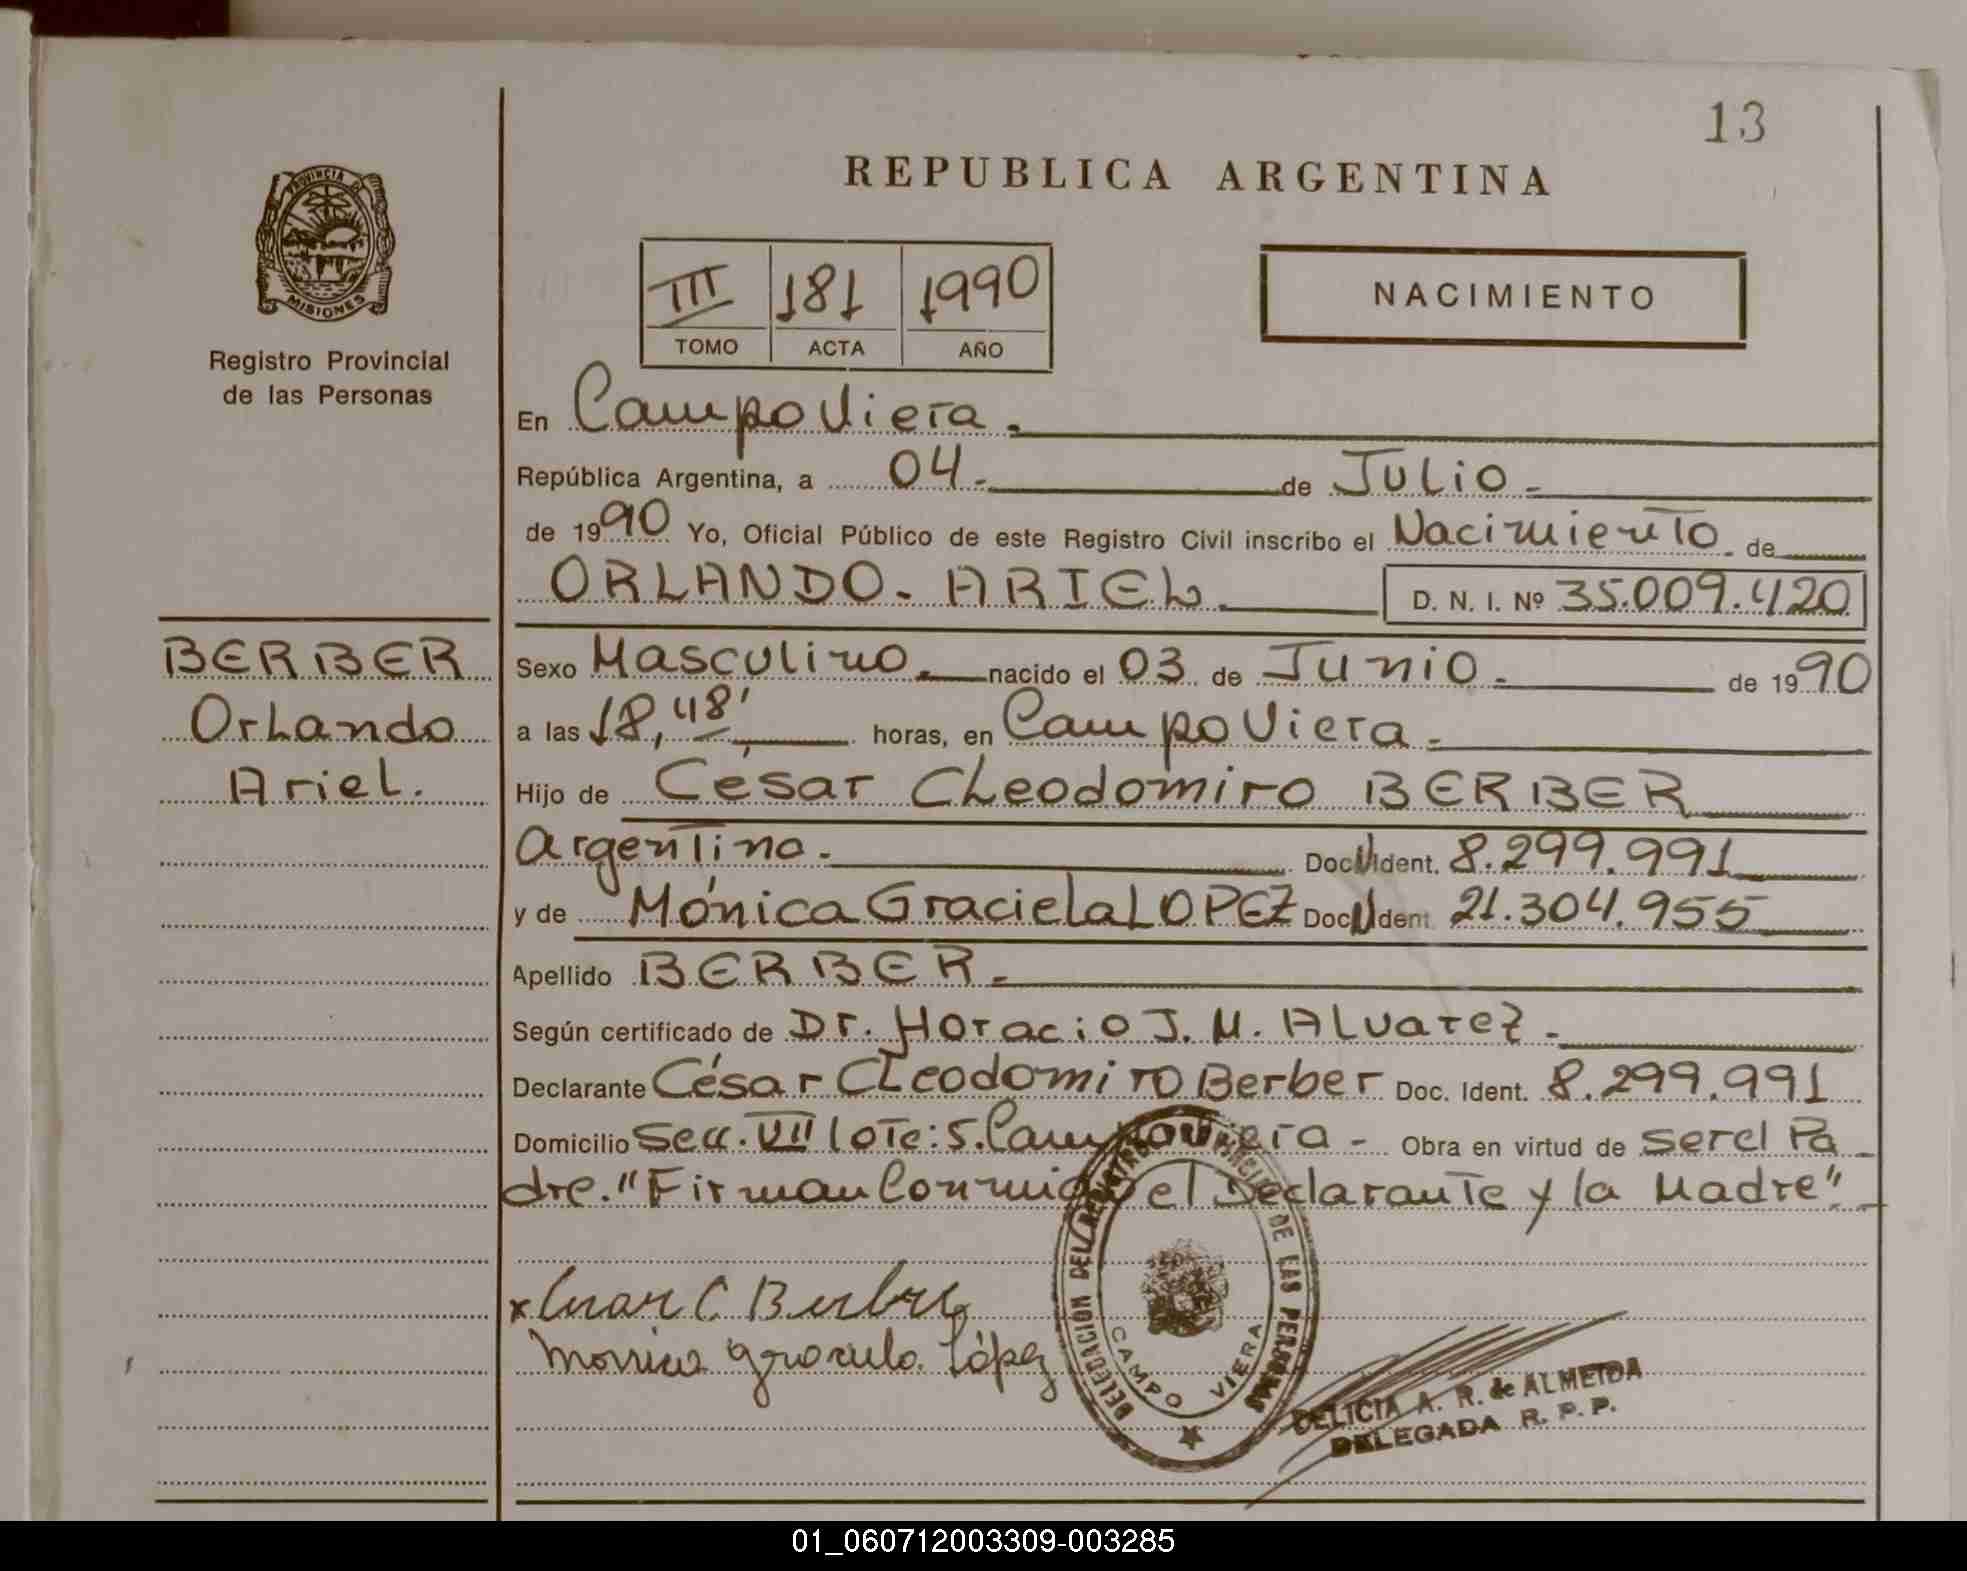 13
REPUBLICA ARGENTINA
PROVINCIA D
MISIONES
Registro Provincial
de las Personas
III 181 1990
TOMO ACTA AÑO
NACIMIENTO
En Campo Viera.
República Argentina, a 04.- de Julio.-
de 1990 Yo, Oficial Público de este Registro Civil inscribo el Nacimiento de
ORLANDO - ARIEL D. N. I. Nº 35.009.420
BERBER
Orlando
Ariel.
Sexo Masculino. nacido el 03 de Junio. de 1990
a las 18,48' horas, en Campo Viera.-
Hijo de César Cleodomiro BERBER
Argentino.- Doc. Ident. 8.299.991
y de Mónica Graciela LOPEZ Doc. Ident. 21.304.955
Apellido BERBER.-
Según certificado de Dr. Horacio J. M. Alvarez.-
Declarante César Cleodomiro Berber Doc. Ident. 8.299.991
Domicilio Secc. VII lote: 5. Campo Viera - Obra en virtud de ser el Pa_
dre. "Firman Conmigo el Declarante y la Madre".-
x Cesar C. Berber
Monica Graciela López
DELEGACION DEL REGISTRO PROVINCIAL DE LAS PERSONAS
CAMPO VIERA
DELICIA A. R. de ALMEIDA
DELEGADA R. P. P.
01_060712003309-003285